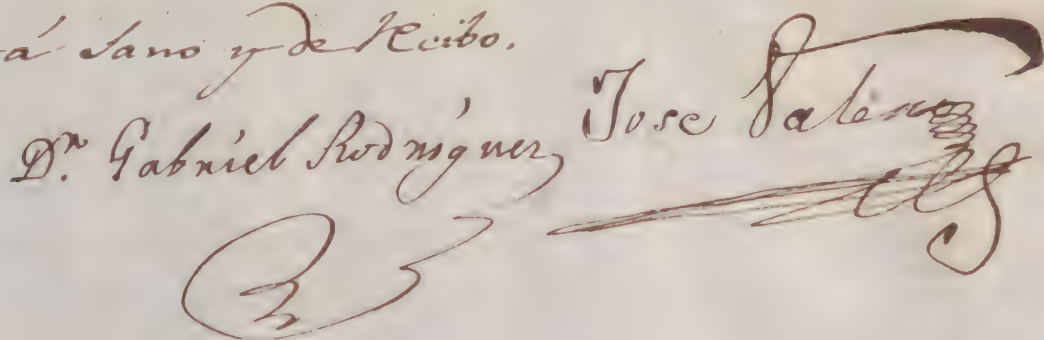 á sano y de Recibo.
Dn. Gabriel Rodriguez Jose